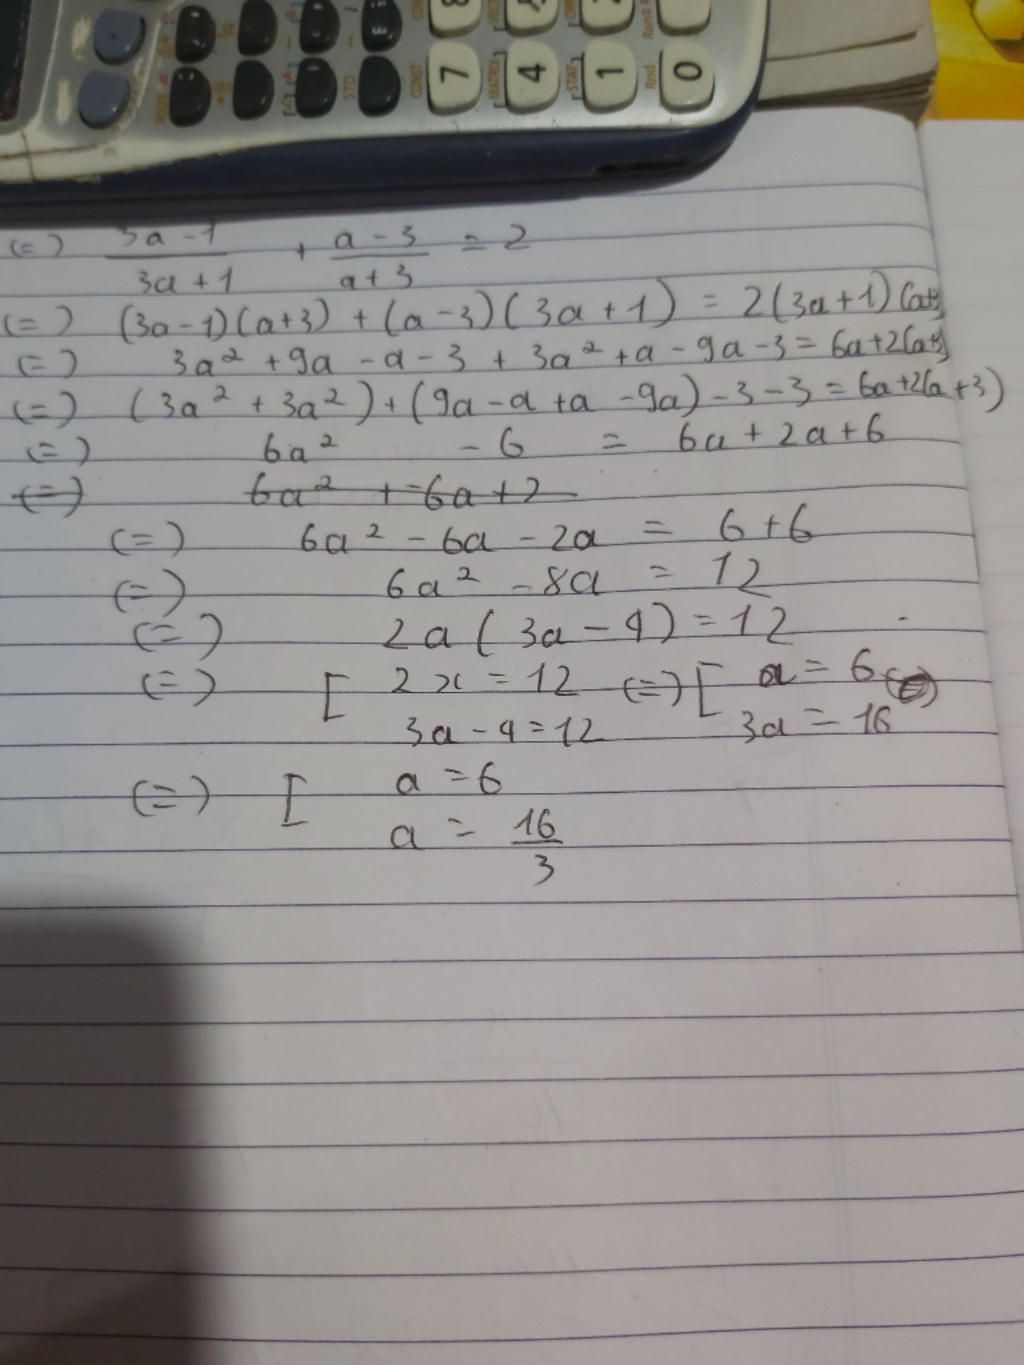 7 4 1 0
CONST MATRIX STAT Rnd
STO
(=) 3a-1/3a+1 + a-3/a+3 = 2
(=) (3a-1)(a+3) + (a-3)(3a+1) = 2(3a+1)(a+3)
(=) 3a² + 9a - a - 3 + 3a² + a - 9a - 3 = 6a+2(a+3)
(=) (3a² + 3a²) + (9a - a + a - 9a) - 3 - 3 = 6a+2(a+3)
(=) 6a² - 6 = 6a + 2a + 6
(=) 6a² + -6a + 2
(=) 6a² - 6a - 2a = 6 + 6
(=) 6a² - 8a = 12
(=) 2a (3a - 4) = 12
(=) [ 2x = 12 (=) [ a = 6
3a - 4 = 12 3a = 16
(=) [ a = 6
a = 16/3